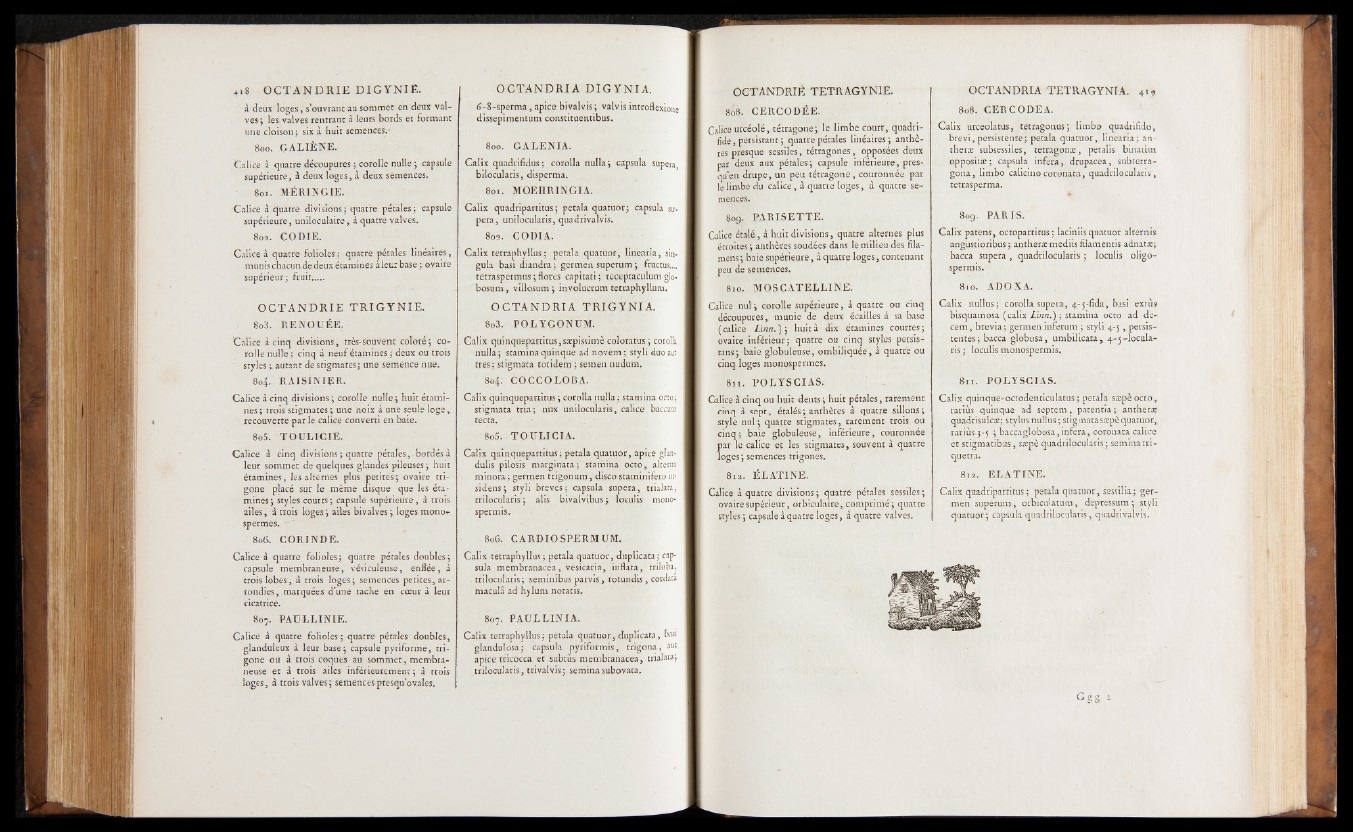 418 OCTANDRIE DIGYNIE.
à deux loges, s'ouvrant au sommet en deux val-
ves; les valves rentrant à leurs bords et formant
une cloison; six à huit semences.
800. GALIÈNE.
Calice à quatre découpures; corolle nulle; capsule
supérieure, à deux loges, à deux semences.
801. MÉRINGIE.
Calice à quatre divisions; quatre pétales; capsule
supérieure, uniloculaire, à quatre valves.
802. CODIE.
Calice à quatre folioles; quatre pétales linéaires,
munis chacun de deux étamines à leur base; ovaire
supérieur; fruit.....
OCTANDRIE TRIGYNIE.
803. RENOUÉE.
Calice à cinq divisions, très-souvent coloré; co-
rolle nulle; cinq à neuf étamines; deux ou trois
styles; autant de stigmates; une semence nue.
804. RAISINIER.
Calice à cinq divisions; corolle nulle; huit étami-
nes; trois stigmates; une noix à une seule loge,
recouverte par le calice converti en baie.
805. TOULICIE.
Calice à cinq divisions; quatre pétales, bordés à
leur sommet de quelques glandes pileuses; huit
étamines, les alternes plus petites; ovaire tri-
gone placé sur le même disque que les éta-
mines; styles courts; capsule supérieure, à trois
ailes, à trois loges; ailes bivalves; loges mono-
spermes.
806. CORINDE.
Calice à quatre folioles; quatre pétales doubles;
capsule membraneuse, vésiculeuse, enflée, à
trois lobes, à trois loges; semences petites, ar-
rondies, marquées d'une tache en cœur à leur
cicatrice.
807. PAULLINIE.
Calice à quatre folioles; quatre pétales doubles,
glanduleux à leur base; capsule pyriforme, tri-
gone ou à trois coques au sommet, membra-
neuse et à trois ailes inférieurement; à trois
loges, à trois valves; semences presqu'ovales.
OCTANDRIA DIGYNIA.
6-8-sperma, apice bivalvis; valvis introflexione
dissepimentum constituentibus.
800. GALENIA.
Calix quadrifidus; corolla nulla; capsula supera,
bilocularis, disperma.
801. MOEHRINGIA.
Calix quadripartitus; petala quatuor; capsula su-
pera, unilocularis, quadrivalvis.
802. CODIA.
Calix tetraphyllus; petala quatuor, linearia, sin-
gula basi diandra; germen superum; fructus....
tetraspermus; flores capitati; receptaculum glo-
bosum, villosum; involucrum tetraphyllum.
OCTANDRIA TRIGYNIA.
803. POLYGONUM.
Calix quinquepartitus, sæpissimè coloratus; corolla
nulla; stamina quinque ad novem; styli duo aut
tres; stigmata totidem; semen nudum.
804. COCCOLOBA.
Calix quinquepartitus; corolla nulla; stamina octo;
stigmata tria; nux unilocularis, calice baccato
tecta.
805. TOULICIA.
Calix quinquepartitus; petala quatuor, apice glan-
dulis pilosis marginata; stamina octo, alterna
minora; germen trigonum, disco staminifero in-
sidens; styli breves; capsula supera, trialata,
trilocularis; alis bivalvibus; loculis mono-
spermis.
806. CARDIOSPERMUM.
Calix tetraphyllus; petala quatuor, duplicata; cap-
sula membranacea, vesicaria, inflata, triloba,
trilocularis; seminibus parvis, rotundis, cordatâ
maculâ ad hylum notatis.
807. PAULLINIA.
Calix tetraphyllus; petala quatuor, duplicata, basi
glandulosa; capsula pyriformis, trigona, aut
apice tricocca et subtùs membranacea, trialata;
trilocularis, trivalvis; semina subovata.
OCTANDRIE TETRAGYNIE.
808. CERCODÉE.
Calice urcéolé, tétragone; le limbe court, quadri-
fide, persistant; quatre pétales linéaires; anthè-
res presque sessiles, tétragones, opposées deux
par deux aux pétales; capsule inférieure, pres-
qu'en drupe, un peu tétragone, couronnée par
le limbe du calice, à quatre loges, à quatre se-
mences.
809. PARISETTE.
Calice étalé, à huit divisions, quatre alternes plus
étroites; anthères soudées dans le milieu des fila-
mens; baie supérieure, à quatre loges, contenant
peu de semences.
810. MOSCATELLINE.
Calice nul; corolle supérieure, à quatre ou cinq
découpures, munie de deux écailles à sa base
(calice Linn.); huit à dix étamines courtes;
ovaire inférieur; quatre ou cinq styles persis-
tans; baie globuleuse, ombiliquée, à quatre ou
cinq loges monospermes.
811. POLYSCIAS.
Calice à cinq ou huit dents; huit pétales, rarement
cinq à sept, étalés; anthères à quatre sillons;
style nul; quatre stigmates, rarement trois ou
cinq; baie globuleuse, inférieure, couronnée
par le calice et les stigmates, souvent à quatre
loges; semences trigones.
812. ÉLATINE.
Calice à quatre divisions; quatre pétales sessiles;
ovaire supérieur, orbiculaire, comprimé; quatre
styles; capsule à quatre loges, à quatre valves.
OCTANDRIA TETRAGYNIA. 419
808. CERCODEA.
Calix urceolatus, tetragonus; limbo quadrifido,
brevi, persistente; petala quatuor, linearia; an-
theræ subsessiles, tetragonæ, petalis binatim
oppositæ; capsula infera, drupacea, subtetra-
gona, limbo calicino coronata, quadrilocularis,
tetrasperma.
809. PARIS.
Calix patens, octopartitus; laciniis quatuor alternis
angustioribus; antheræ mediis filamentis adnatæ;
bacca supera, quadrilocularis; loculis oligo-
spermis.
810. ADOXA.
Calix nullus; corolla supera, 4-5-fida, basi extùs
bisquamosa (calix Linn.); stamina octo ad de-
cem, brevia; germen inferum; styli 4-5, persis-
tentes; bacca globosa, umbilicata, 4-5-locula-
ris; loculis monospermis.
811. POLYSCIAS.
Calix quinque-octodenticulatus; petala sæpè octo,
rariùs quinque ad septem, patentia; antheræ
quadrisulcæ; stylus nullus; stigmata sæpè quatuor,
rariùs 3-5; bacca globosa, infera, coronata calice
et stigmatibus, sæpè quadrilocularis; semina tri-
quetra.
812. ELATINE.
Calix quadripartitus; petala quatuor, sessilia; ger-
men superum, orbiculatum, depressum; styli
quatuor; capsula quadrilocularis, quadrivalvis.
Ggg 2